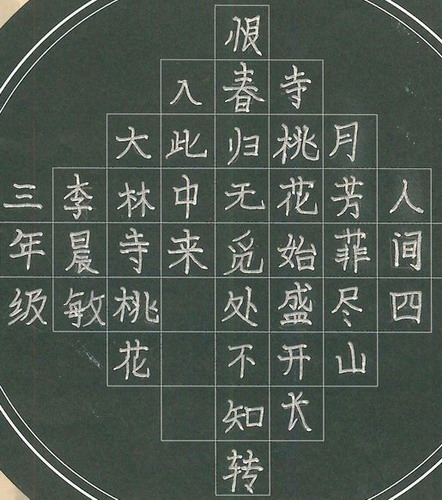 人间四
月芳菲尽山
寺桃花始盛开长
恨春归无觅处不知转
入此中来
大林寺桃花
李晨敏
三年级